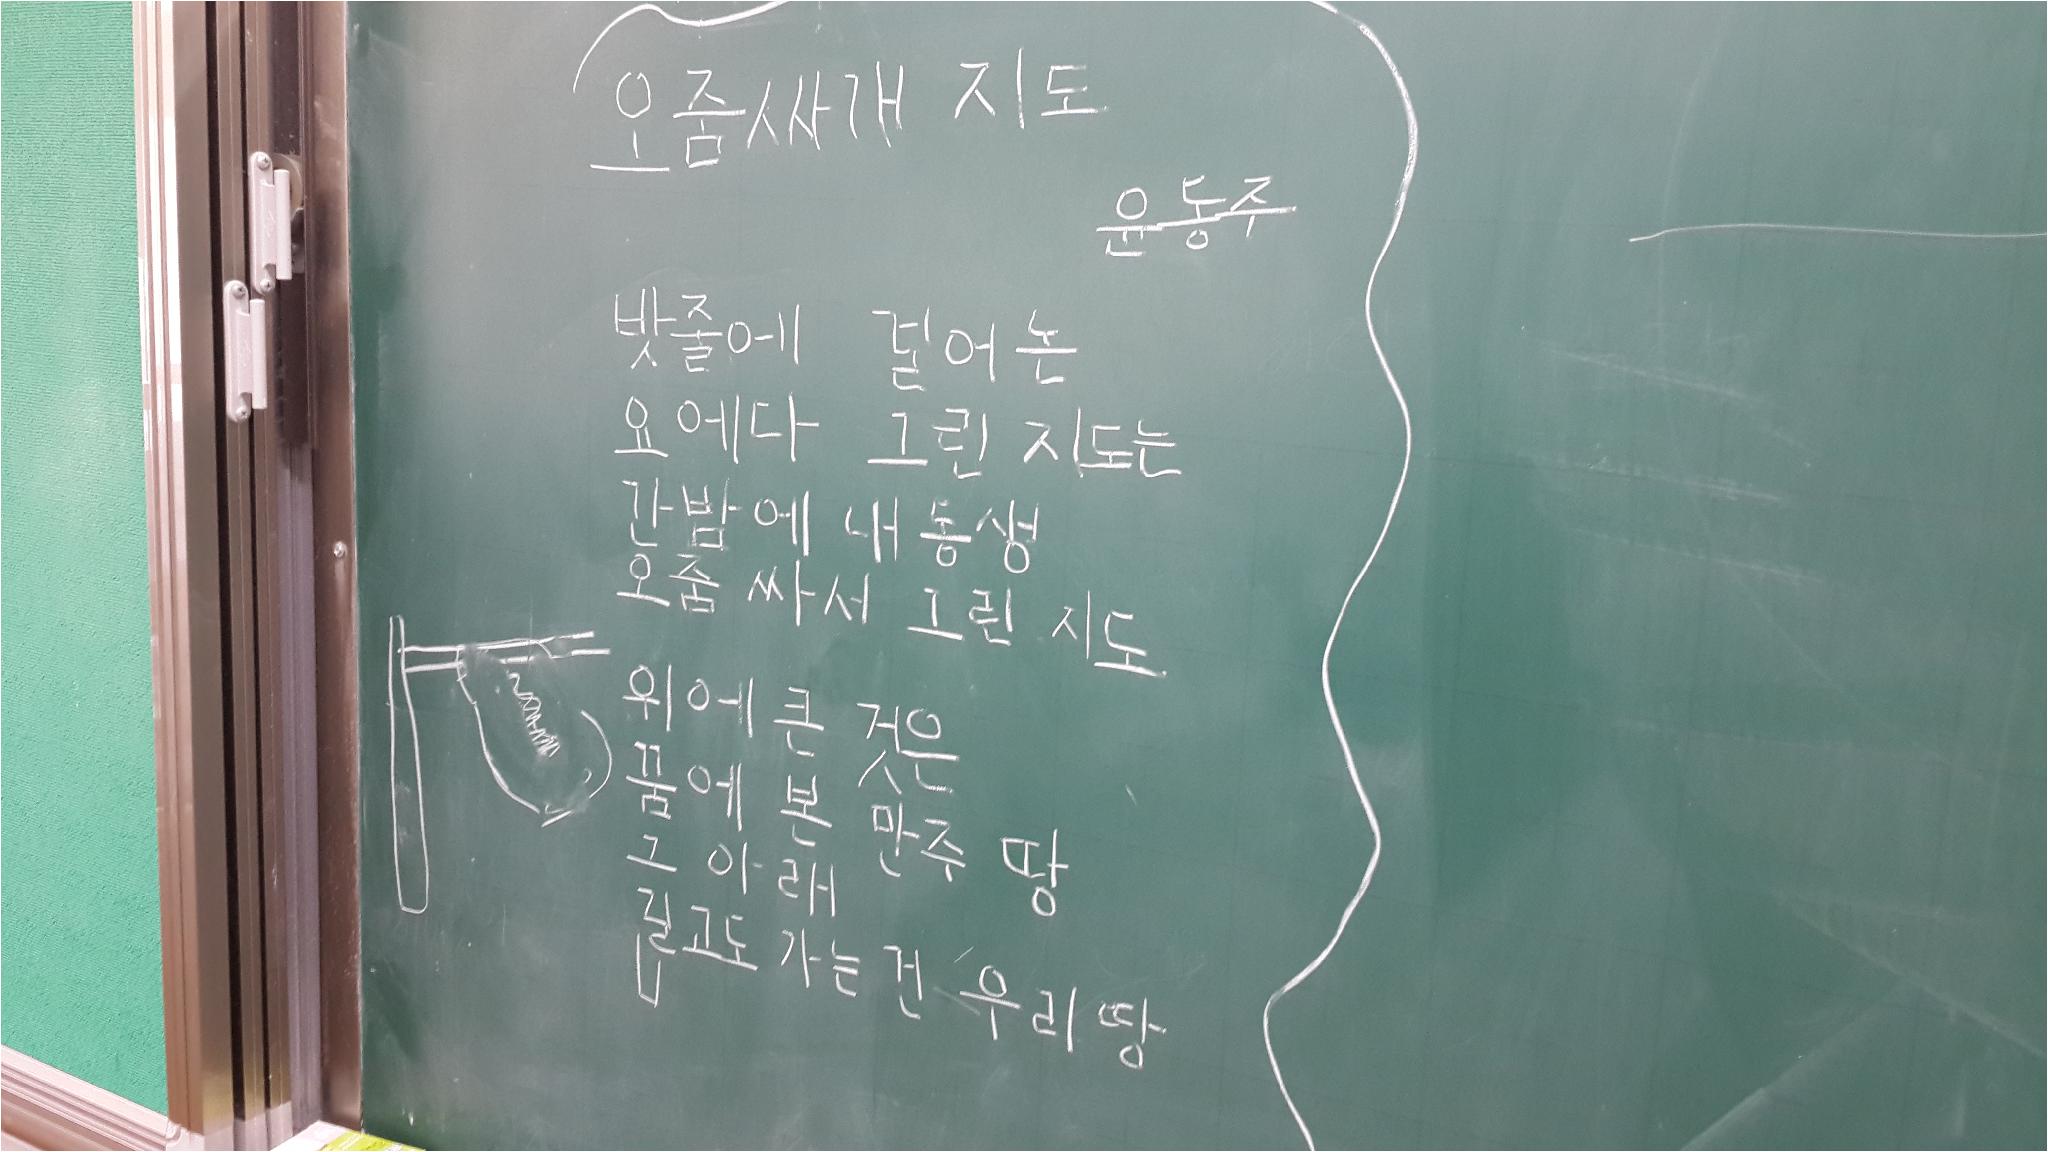 오줌싸개 지도
윤동주
밧줄에 걸어논
요에다 그린 지도는
간밤에 내 동생
오줌 싸서 그린 지도
위에 큰 것은
꿈에 본 만주 땅
그 아래
길고도 가는 건 우리 땅